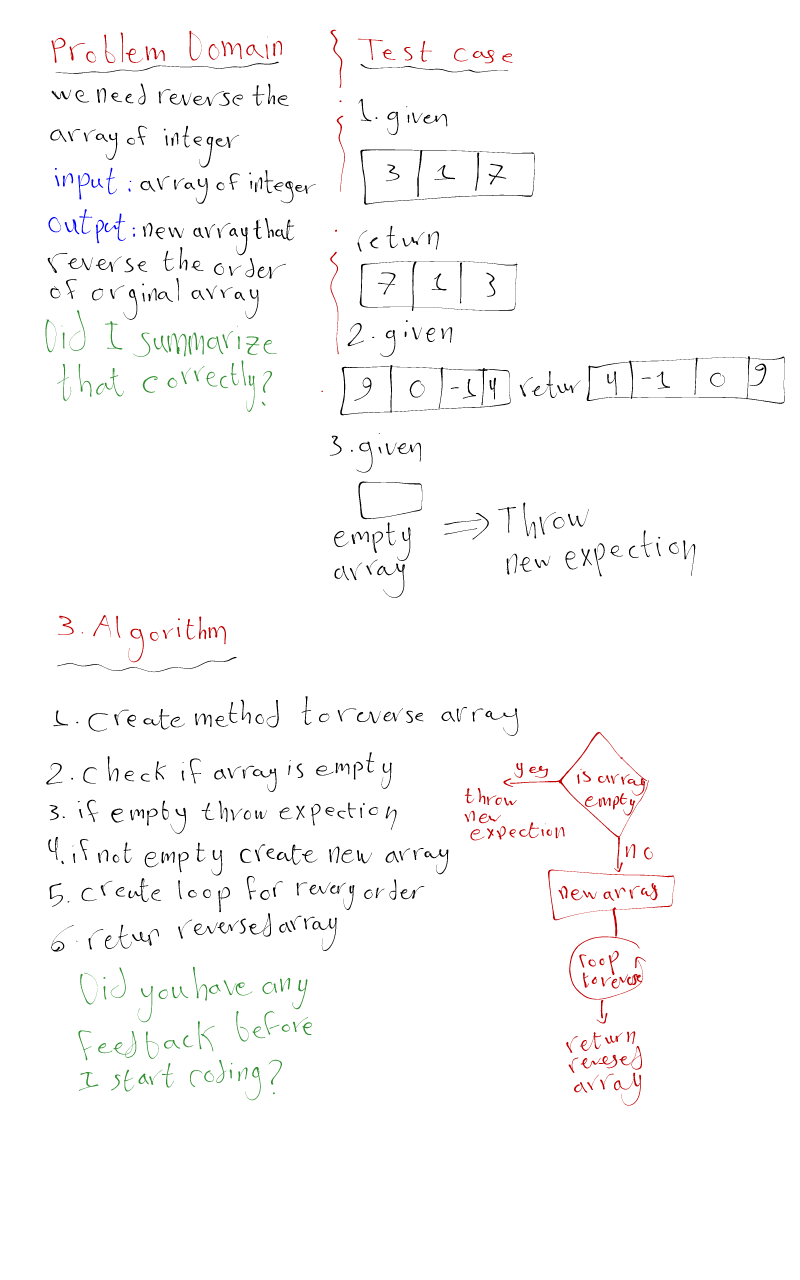 Problem Domain
we need reverse the
array of integer
input : array of integer
output : new array that
reverse the order
of orginal array
Did I summarize
that correctly?
Test case
1. given
3 1 7
return
7 1 3
2. given
9 0 -1 4 retur 4 -1 0 9
3. given
empty
array
⇒ Throw
new expection
3. Algorithm
1. create method to reverse array
2. check if array is empty
3. if empty throw expection
4. if not empty create new array
5. create loop for revery order
6. retur reversed array
Did you have any
feedback before
I start coding?
is array
empty
yes
throw
new
expection
no
new array
loop
to revese
return
revesed
array